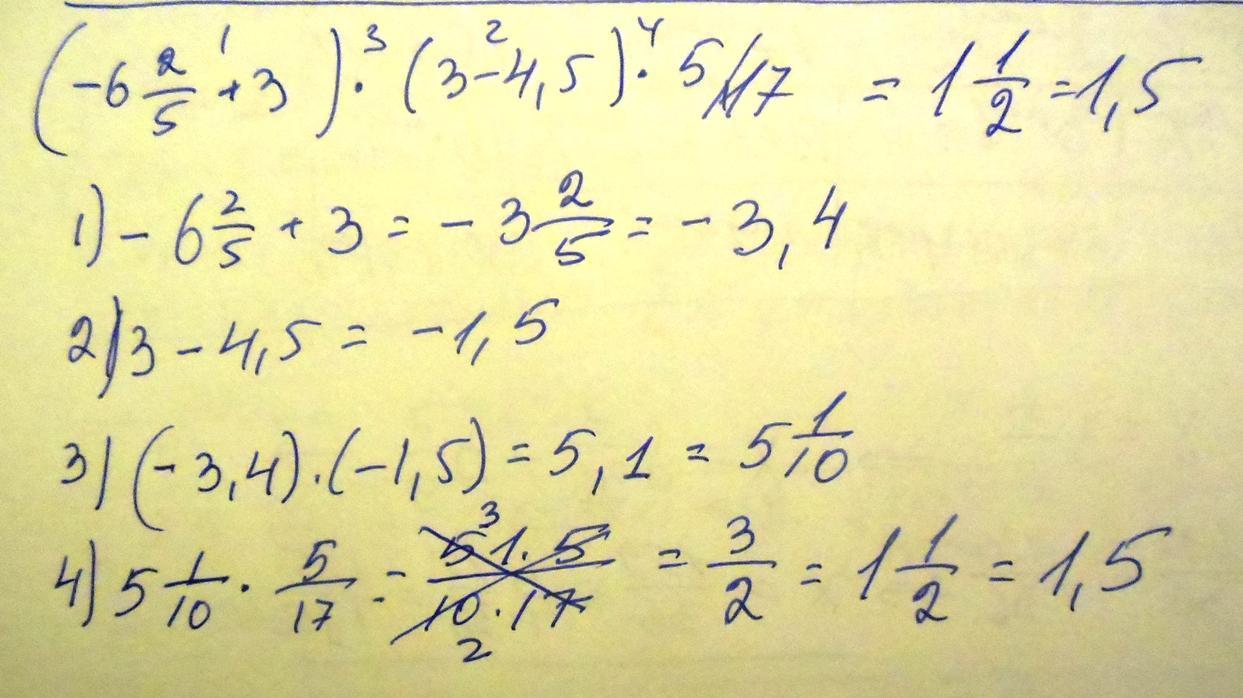 (-6 2/5 + 3) · (3 - 4,5) · 5/17 = 1 1/2 = 1,5
1) - 6 2/5 + 3 = - 3 2/5 = - 3,4
2) 3 - 4,5 = -1,5
3) (-3,4) · (-1,5) = 5,1 = 5 1/10
4) 5 1/10 · 5/17 = 51 · 5/10 · 17 = 3/2 = 1 1/2 = 1,5